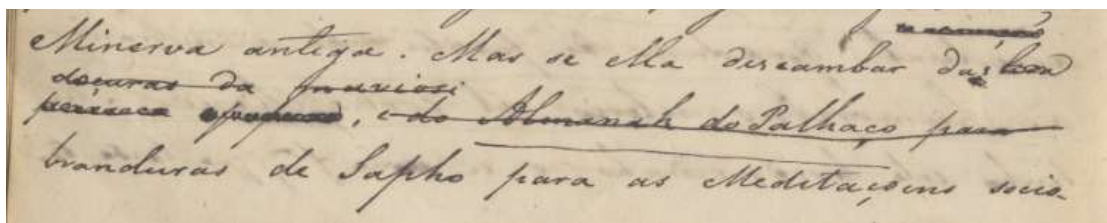 Minerva antiga. Mas se ella descambar das
doçuras da
, e do Almanak do Palhaço para
branduras de Sapho para as Meditaçoens socio-